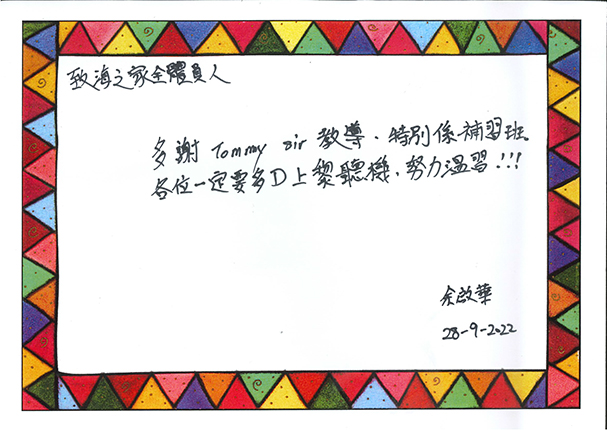 致海之家全體員人
多謝 Tommy sir 教導、特別係補習班。
各位一定要多D上黎聽機、努力溫習!!!
余啟華
28-9-2022